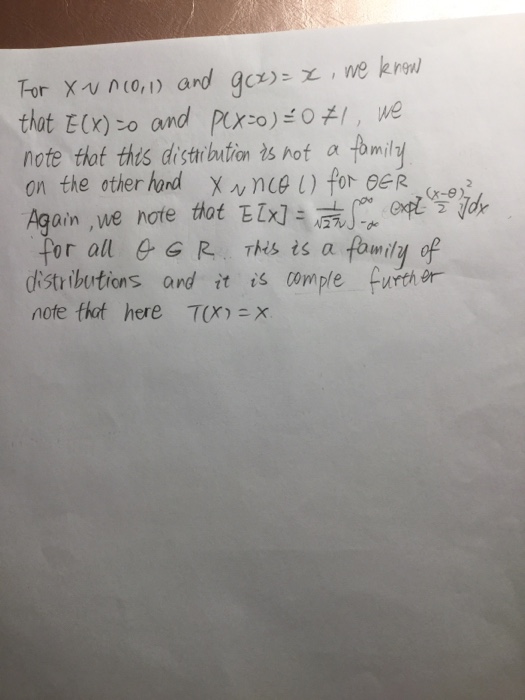 For X ~ n(0,1) and g(x) = x, we know
that E(X)=0 and P(X=0)=0 ≠ 1, we
note that this distribution is not a family
on the other hand X ~ n(θ 1) for θ∈R
Again, we note that E[X] = 1/√2π ∫-∞^∞ exp[-(x-θ)²/2]dx
for all θ ∈ R. This is a family of
distributions and it is comple further
note that here T(X) = X.